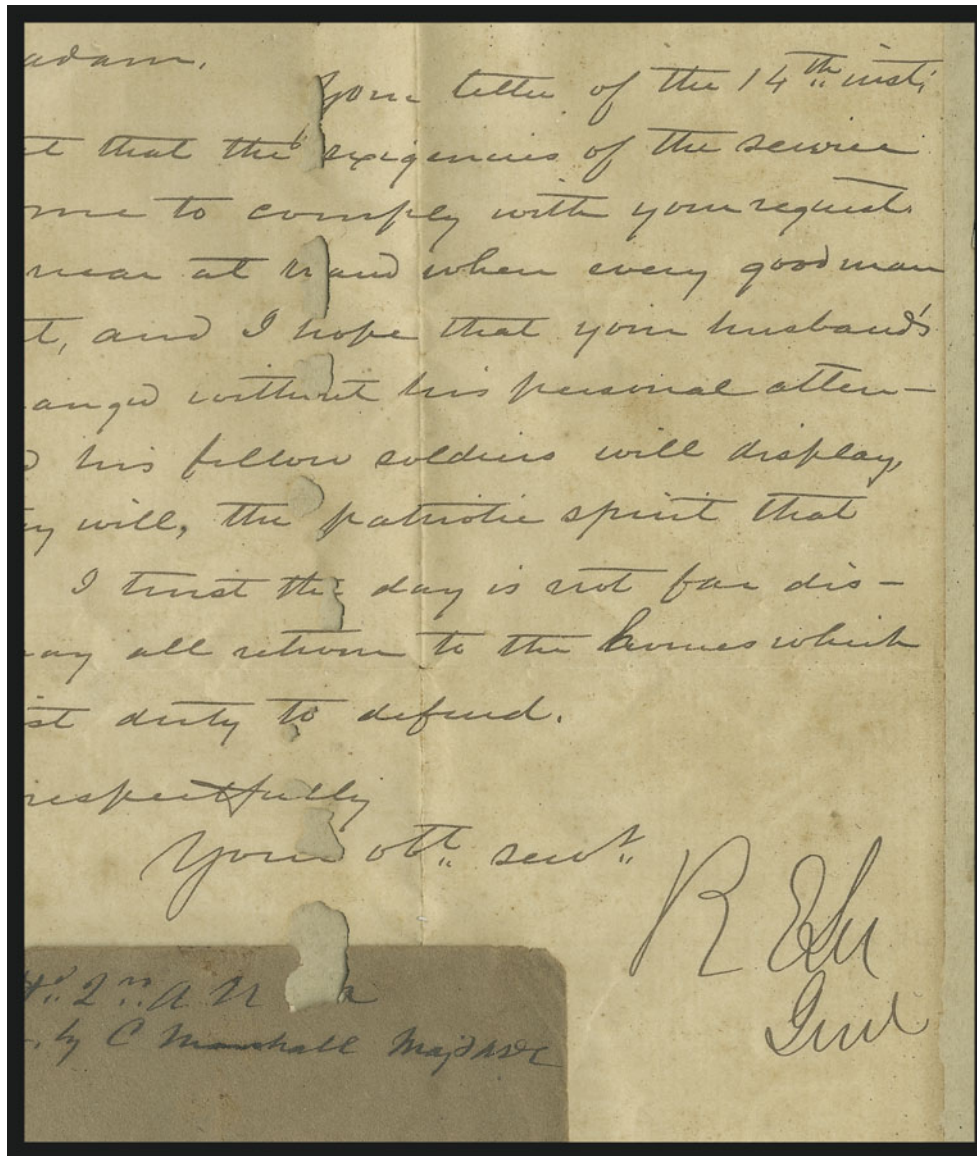 adam.
Your letter of the 14th inst;
t that the exigencies of the service
me to comply with your request.
near at hand when every good man
t, and I hope that your husband's
anged without his personal atten-
d his fellow soldiers will display,
y will, the patriotic spirit that
I trust the day is not far dis-
ay all return to the homes which
st duty to defend.
respectfully
Your obt. servt.
R E Lee
Genl
2nd A N
by C Marshall Maj & ADC